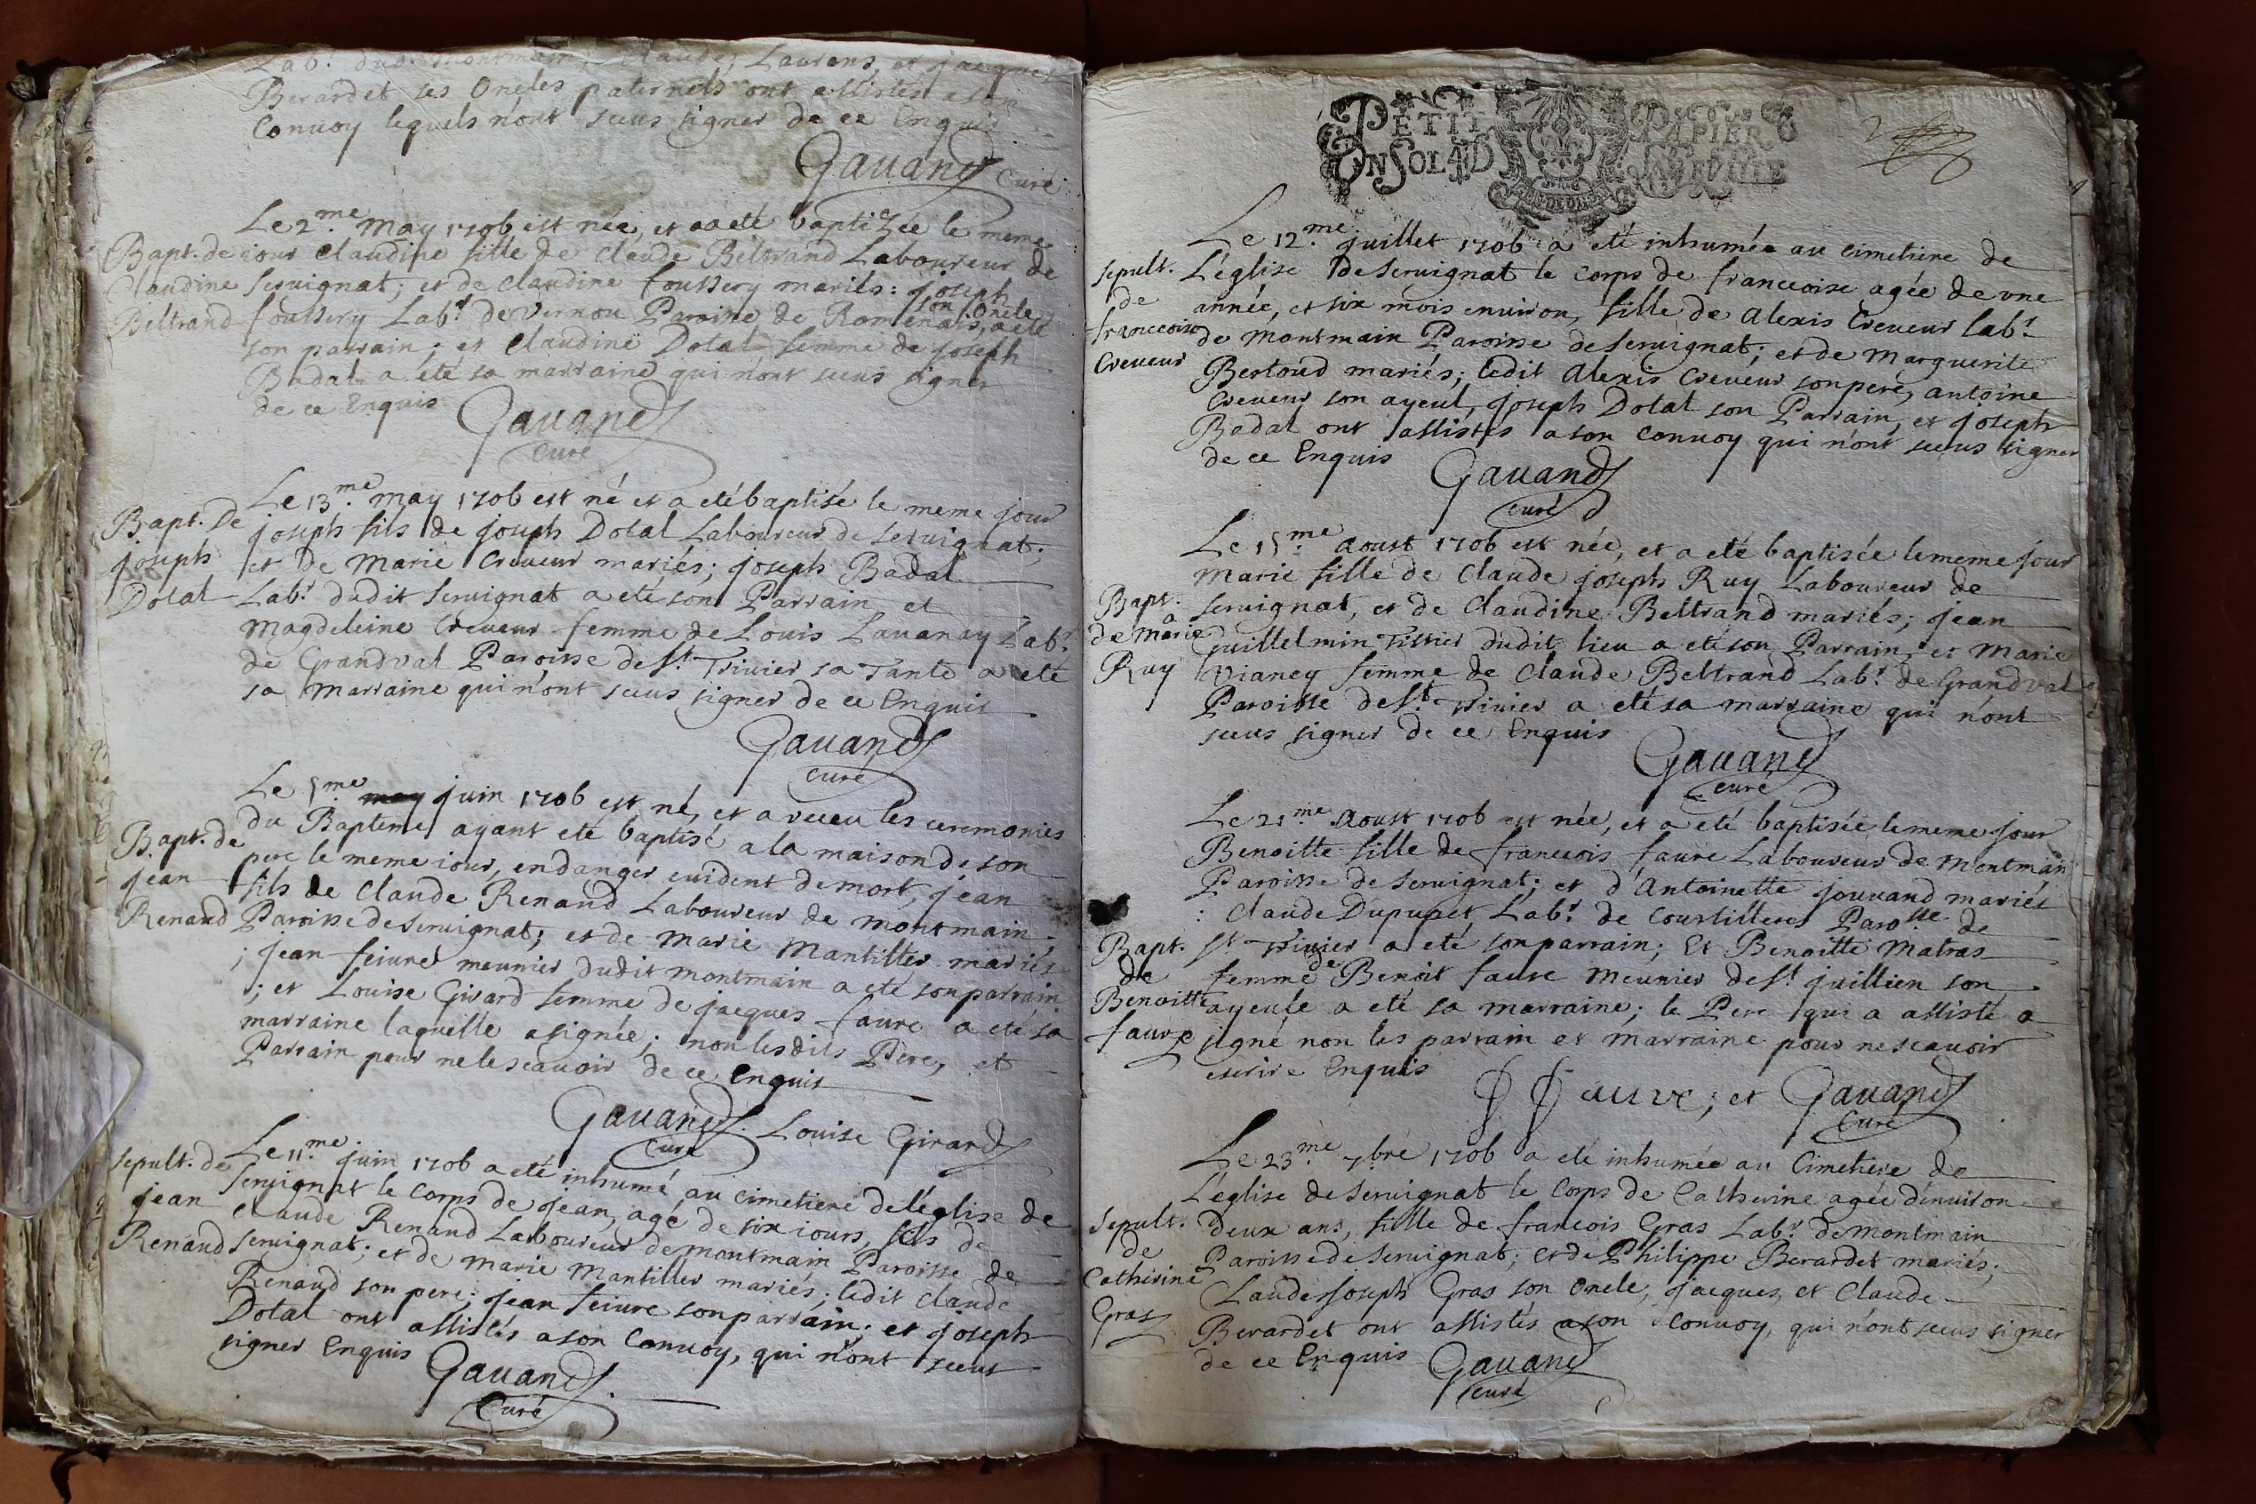 Lab.r dud. Montmain, Claude, Laurens, et Jacques
Berardet ses Oncles paternels ont assistés a son
Convoy lequels n'ont sceus signer de ce Enquis
Gauand Curé
Le 2.me may 1706 est née, et a eté baptizée le meme
Bapt. de
Claudine
Beltrand
iour Claudine fille de Claude Beltrand Laboureur de
Seruignat; et de Claudine foussery mariés: joseph
foussery Lab.r de Vernou Paroisse de Romenais, son Oncle a eté
son parrain; et Claudine Dotal femme de joseph
Badal a eté sa marraine qui n'ont sceus signer
de ce Enquis
Gauand
Curé
Le 13.me may 1706 est né et a eté baptisé le meme jour
Bapt. De
joseph
Dotal
joseph fils de joseph Dotal Laboureur de Seruignat;
et de Marie Creueur mariés; joseph Badal
Lab.r dudit Seruignat a eté son Parrain, et
Magdeleine Creueur femme de Louis Lauanay Lab.r
de Grandval Paroisse de S.t Triuier sa Tante a eté
sa Marraine qui n'ont sceus signer de ce Enquis
Gauand
Curé
Le 5.me may juin 1706 est né, et a receu les ceremonies
Bapt. de
jean
Renaud
du Bapteme ayant eté baptisé a la maison de son
pere le meme iour, en danger euident de mort, jean
fils de Claude Renaud Laboureur de Montmain
Paroisse de Seruignat; et de Marie Mantillier mariés
; jean feiure meunier dudit Montmain a eté son parrain
; et Louise Girard femme de jacques faure a eté sa
marraine laquelle a signée; non lesdits Pere, et
Parrain pour ne le scauoir de ce Enquis
Gauand Curé. Louise Girard
Le 11.me juin 1706 a eté inhumé au cimetiere de l'église de
Sepult. de
jean
Renaud
Seruignat le Corps de jean, agé de six iours, fils de
Claude Renaud Laboureur de Montmain Paroisse de
Seruignat; et de Marie Mantillier mariés; ledit Claude
Renaud son pere; jean feiure son parrain; et joseph
Dotal ont assistés a son Conuoy, qui n'ont sceus
signer Enquis
Gauand
Curé
PETIT PAPIER
UN SOL 4 D
Le 12.me juillet 1706 a eté inhumée au cimetiere de
Sepult.
de
francoise
Creueur
L'église de Seruignat le corps de francoise agée de vne
année, et six mois enuiron, fille de Alexis Creueur lab.r
de Montmain Paroisse de Seruignat; et de Marguerite
Bertoud mariés; ledit Alexis Creueur son pere, Antoine
Creueur son ayeul, joseph Dotal son Parrain, et joseph
Badal ont assistés a son conuoy qui n'ont sceus signer
de ce Enquis
Gauand
Curé
Le 15.me Aoust 1706 est née, et a eté baptisée le meme jour
Bapt.
de Marie
Ruy
Marie fille de Claude joseph Ruy Laboureur de
Seruignat, et de Claudine Beltrand mariés; jean
Guillelmin Tissier dudit lieu a eté son Parrain, et Marie
Vianey femme de Claude Beltrand Lab.r de Grandval
Paroisse de S.t Triuier a eté sa marraine qui n'ont
sceus signer de ce Enquis
Gauand
Curé
Le 21.me Aoust 1706 est née, et a eté baptisée le meme jour
Benoitte fille de francois faure Laboureur de Montmain
Paroisse de Seruignat; et d'Antoinette jouuand mariés
: Claude Dupupet Lab.r de Courtilles Paro.sse de
Bapt.
de
Benoitte
faure
S.t Triuier a eté son parrain; Et Benoitte Matras
femme de Benoit faure Meunier de S.t juillien son
ayeule a eté sa marraine; le Pere qui a assisté a
signé non les parrain et marraine pour ne scauoir
escrire Enquis
f faure; et Gauand
Curé
Le 23.me 7.bre 1706 a eté inhumée au Cimetiere de
Sepult.
de
Catherine
Gras
L'église de Seruignat le Corps de Catherine agée d'enuiron
Deux ans, fille de francois Gras Lab.r de Montmain
Paroisse de Seruignat; et de Philippe Berardet mariés;
Claude joseph Gras son Oncle, jacques, et Claude
Berardet ont assistés a son Conuoy, qui n'ont sceus signer
de ce Enquis
Gauand
Curé